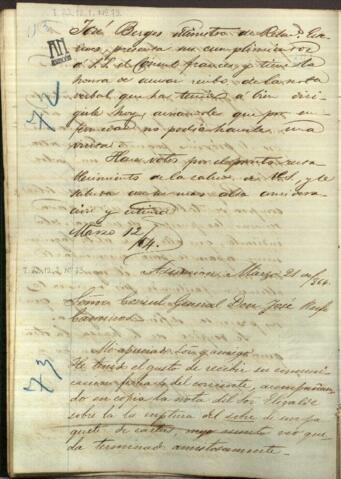 I-22,12,1 Nº 73
José Berges Ministro de Relac.s Exte-
riores, presenta sus cumplimientos
á S.S. el Consul frances, y tiene la
honra de acusar recibo de la nota
verbal que ha tenido á bien diri-
girle hoy, avisandole que por en-
fermedad no podia hacerle una
visita
72
Hace votos por el pronto resta-
blecimiento de la salud de V.S. y le
reitera su mas alta considera-
cion y estima
Marzo 12/
64.
I-22,12,2 Nº 73
Asuncion, Marzo 21 de/864.
Señor Consul General Don José Rufo
Caminos
73
Mi apreciado Señor y amigo
He tenido el gusto de recibir su comuni-
cacion fecha del corriente, acompañan-
do en copia la nota del Sor Elizalde
sobre la ruptura del sobre de un pa-
quete de cartas, cuyo asunto veo que
da terminado amistosamente.